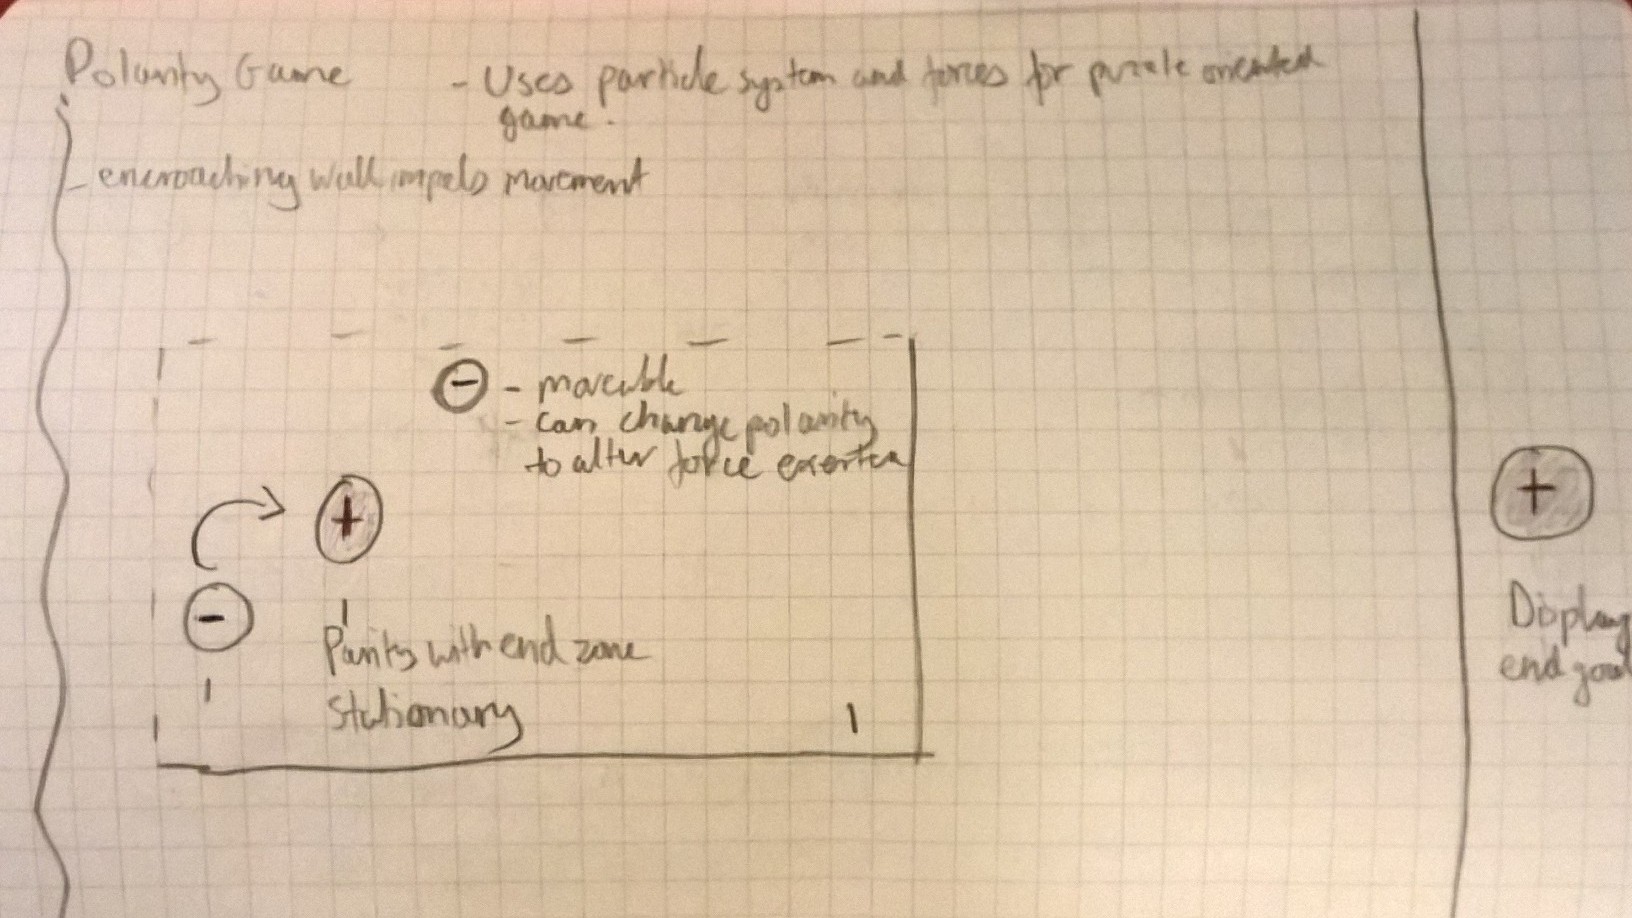 Polarity Game
- Uses particle system and forces for puzzle oriented
game.
- encroaching wall impels movement
- - moveable
- can change polarity
to alter force exerted
+
-
Parity with end zone
Stationary
+
Display
end goal